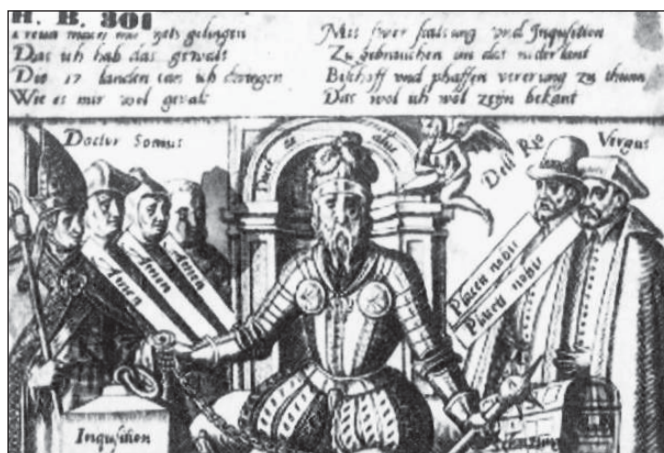 H. B. 301
mir nets gelingen
Das ich hab das gewalt
Die 17 landen can ich dwingen
Wie es mir wol gevalt
Mitt und Inquisition
Zu gebrauchen um das niderlant
Bischoff und phaffen vererung zu thunn
Das wol ich wol zeyn bekant
Doctor Sonnus
Duct de dalve
Dell Rio
Vergus
Amen
Amen
Amen
Placett nobis
Placett nobis
Inqusition